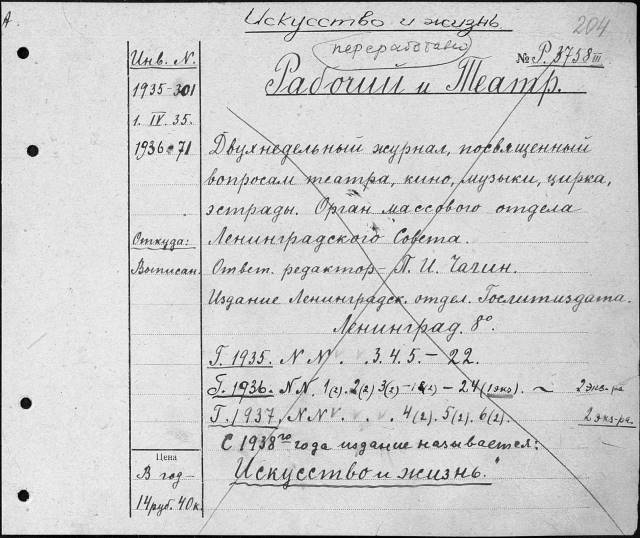 А.
Искусство и жизнь.
204
переработано
№ Р. 3758 III
Рабочий и Театр.
Инв. N.
1935-301
1. IV. 35.
1936-71
Двухнедельный журнал, посвященный
вопросам театра, кино, музыки, цирка,
эстрады. Орган массового отдела
Откуда:
Ленинградского Совета.
Выписан.
Ответ. редактор - П. И. Чагин.
Издание Ленинградск. отдел. Гослитиздата.
Ленинград. 8°
Г. 1935. N N . . 3. 4. 5. - 22.
Г. 1936. N N. 1(2). 2(2) 3(2) - - 24 (1 экз). ~ 2 экз-ра
Г. 1937. N N . . . 4(2). 5(2). 6(2). 2 экз-ра.
С 1938го года издание называется:
Цена
В год
"Искусство и жизнь."
14 руб. 40 к.